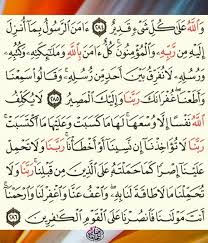 وَٱللَّهُ عَلَىٰ كُلِّ شَىْءٍ قَدِيرٌ ٢٨٤ ءَامَنَ ٱلرَّسُولُ بِمَآ أُنزِلَ
إِلَيْهِ مِن رَّبِّهِۦ وَٱلْمُؤْمِنُونَ ۚ كُلٌّ ءَامَنَ بِٱللَّهِ وَمَلَـٰٓئِكَتِهِۦ وَكُتُبِهِۦ
وَرُسُلِهِۦ لَا نُفَرِّقُ بَيْنَ أَحَدٍ مِّن رُّسُلِهِۦ ۚ وَقَالُوا۟ سَمِعْنَا
وَأَطَعْنَا ۖ غُفْرَانَكَ رَبَّنَا وَإِلَيْكَ ٱلْمَصِيرُ ٢٨٥ لَا يُكَلِّفُ
ٱللَّهُ نَفْسًا إِلَّا وُسْعَهَا ۚ لَهَا مَا كَسَبَتْ وَعَلَيْهَا مَا ٱكْتَسَبَتْ ۗ
رَبَّنَا لَا تُؤَاخِذْنَآ إِن نَّسِينَآ أَوْ أَخْطَأْنَا ۚ رَبَّنَا وَلَا تَحْمِلْ
عَلَيْنَآ إِصْرًا كَمَا حَمَلْتَهُۥ عَلَى ٱلَّذِينَ مِن قَبْلِنَا ۚ رَبَّنَا وَلَا
تُحَمِّلْنَا مَا لَا طَاقَةَ لَنَا بِهِۦ ۖ وَٱعْفُ عَنَّا وَٱغْفِرْ لَنَا وَٱرْحَمْنَآ ۚ
أَنتَ مَوْلَىٰنَا فَٱنصُرْنَا عَلَى ٱلْقَوْمِ ٱلْكَـٰفِرِينَ ٢٨٦